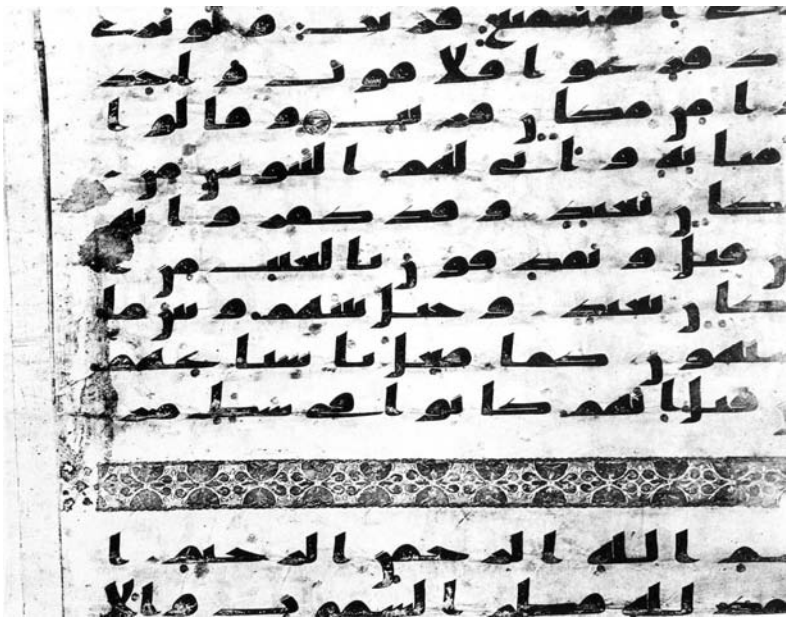 ى انه سميع قريب ولو ترى
ذ فزعوا فلا فوت واخذ
ا من مكان قريب وقالوا
منا به وانى لهم التناوش من
مكان بعيد وقد كفروا به
ن قبل ويقذفون بالغيب من
مكان بعيد وحيل بينهم وبين ما
يشتهون كما فعل باشيعهم
ن قبل انهم كانوا في شك مر
سم الله الرحمن الرحيم ا
لحمد لله فطر السموت والا